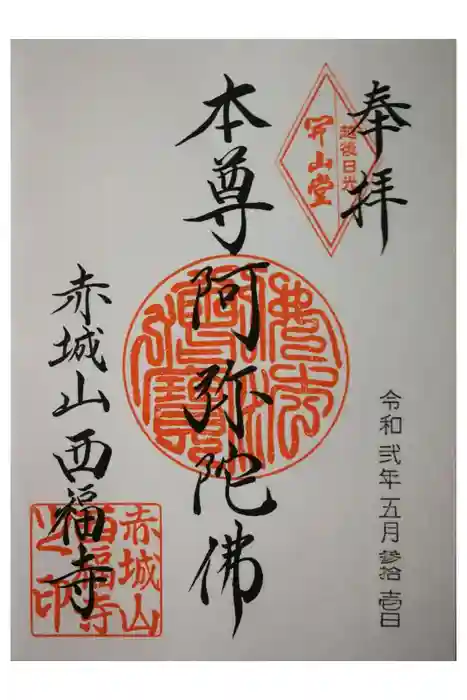 奉拝
越後日光
開山堂
令和弐年五月参拾壱日
本尊阿弥陀佛
赤城山西福寺
赤城山
西福寺
之印